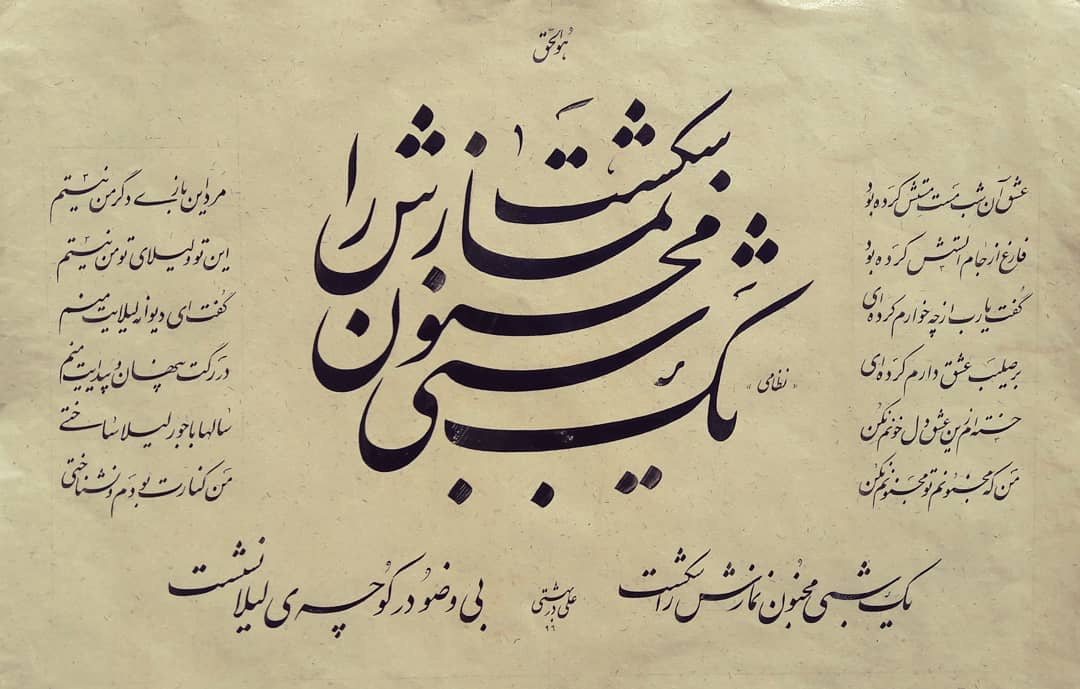 هوالحق
یک شبی
مجنون
نمازش را
شکست
«نظامی»
عشق آن شب مست مستش کرده بود
فارغ از جام الستش کرده بود
گفت یارب از چه خوارم کرده ای
بر صلیب عشق دارم کرده ای
خسته ام زین عشق دل خونم نکن
من که مجنونم تو مجنونم نکن
مرد این بازی دگر من نیستم
این تو و لیلای تو من نیستم
گفت ای دیوانه لیلایت منم
در رگت پنهان و پیدایت منم
سالها با جور لیلا ساختی
من کنارت بودم و نشناختی
یک شبی مجنون نمازش را شکست
علی
بی وضو در کوچه ی لیلا نشست